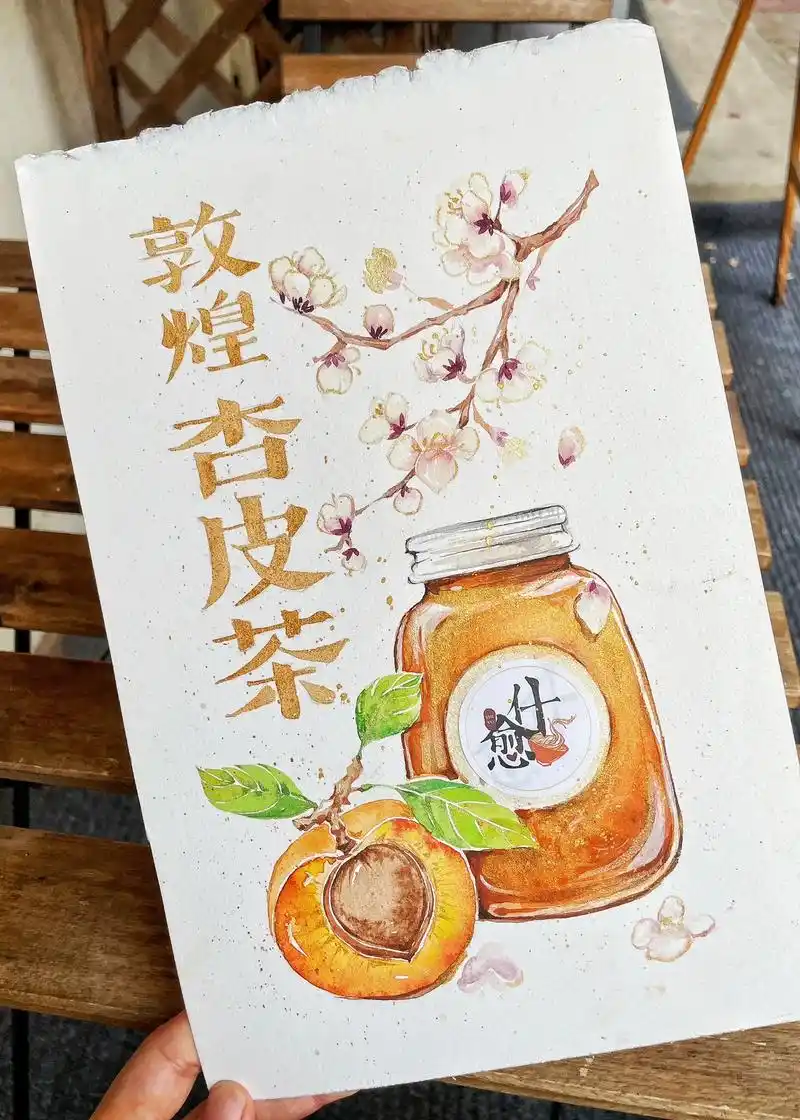 敦煌杏皮茶
什愈